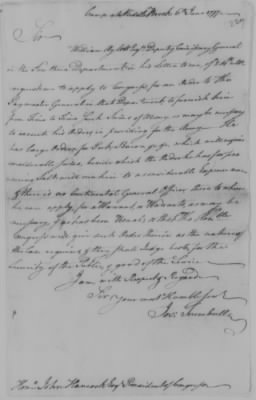 Camp at Middle Brook 6th June 1777.
Sir
William Aylett Esqr Deputy Commissary General
in the Southern Department in his Letter to me of
requests me to apply to Congress for an Order to the
Paymaster General in that Department to furnish him
from Time to Time such Sums of Money, as may be necessary
to execute his Orders in providing for the Army. He
has large Orders for Pork, Bacon &c which will require
considerable Sums, besides which the Orders he has for
will amount to a considerable Expence
& there is no Continental General Officer there to whom
he can apply, for a Warrant, or Warrants, as may be
necessary, & as has been Usual; Wish the Honble
Congress would give such Order therein as the nature of
the Case requires, & they shall Judge best, for the
Security of the Public, & good of the Service
I am, with Respect, & Regard
Sir, your most Humble Servt
Jos: Trumbull
Honl. John Hancock Esqr President of Congress